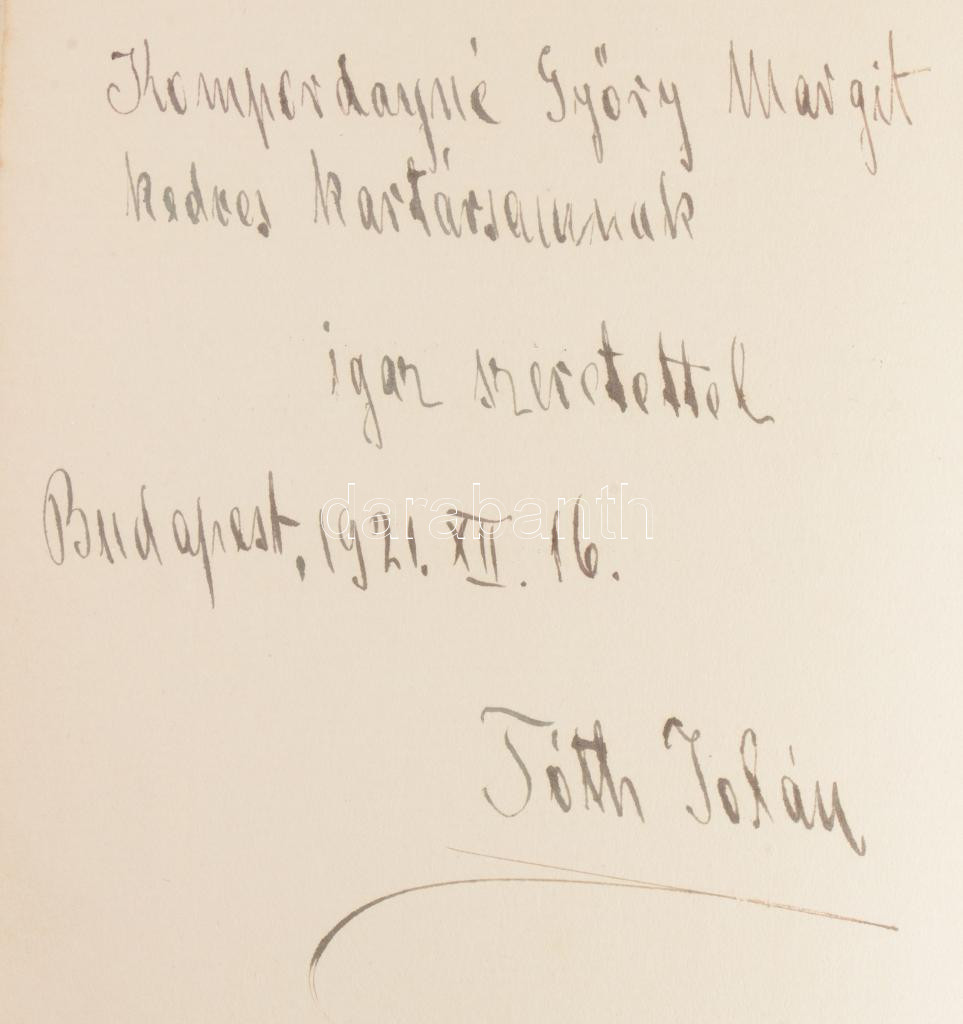 Kompordayné Győry Margit
kedves kartársamnak
igaz szeretettel
darabanth
Budapest, 1921. XII. 16.
Tóth Jolán